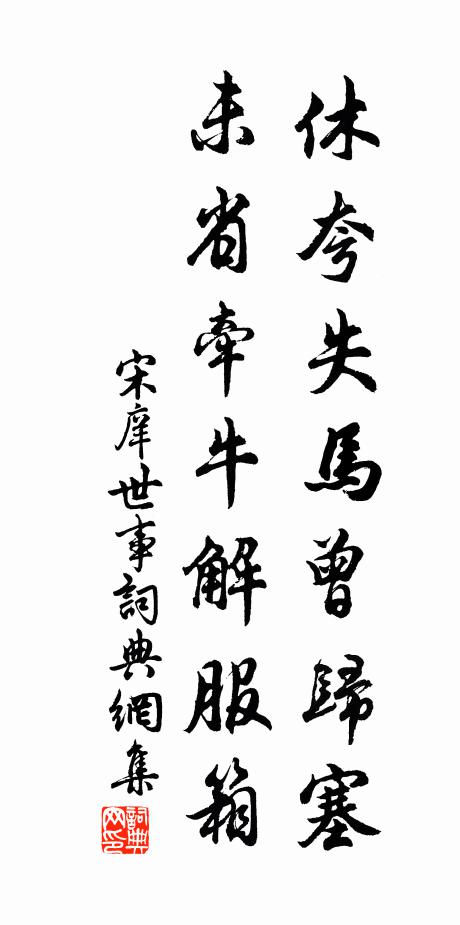 休夸失馬曾歸塞
未省牽牛解服箱
宋庠世事詞典網集
詞典网印